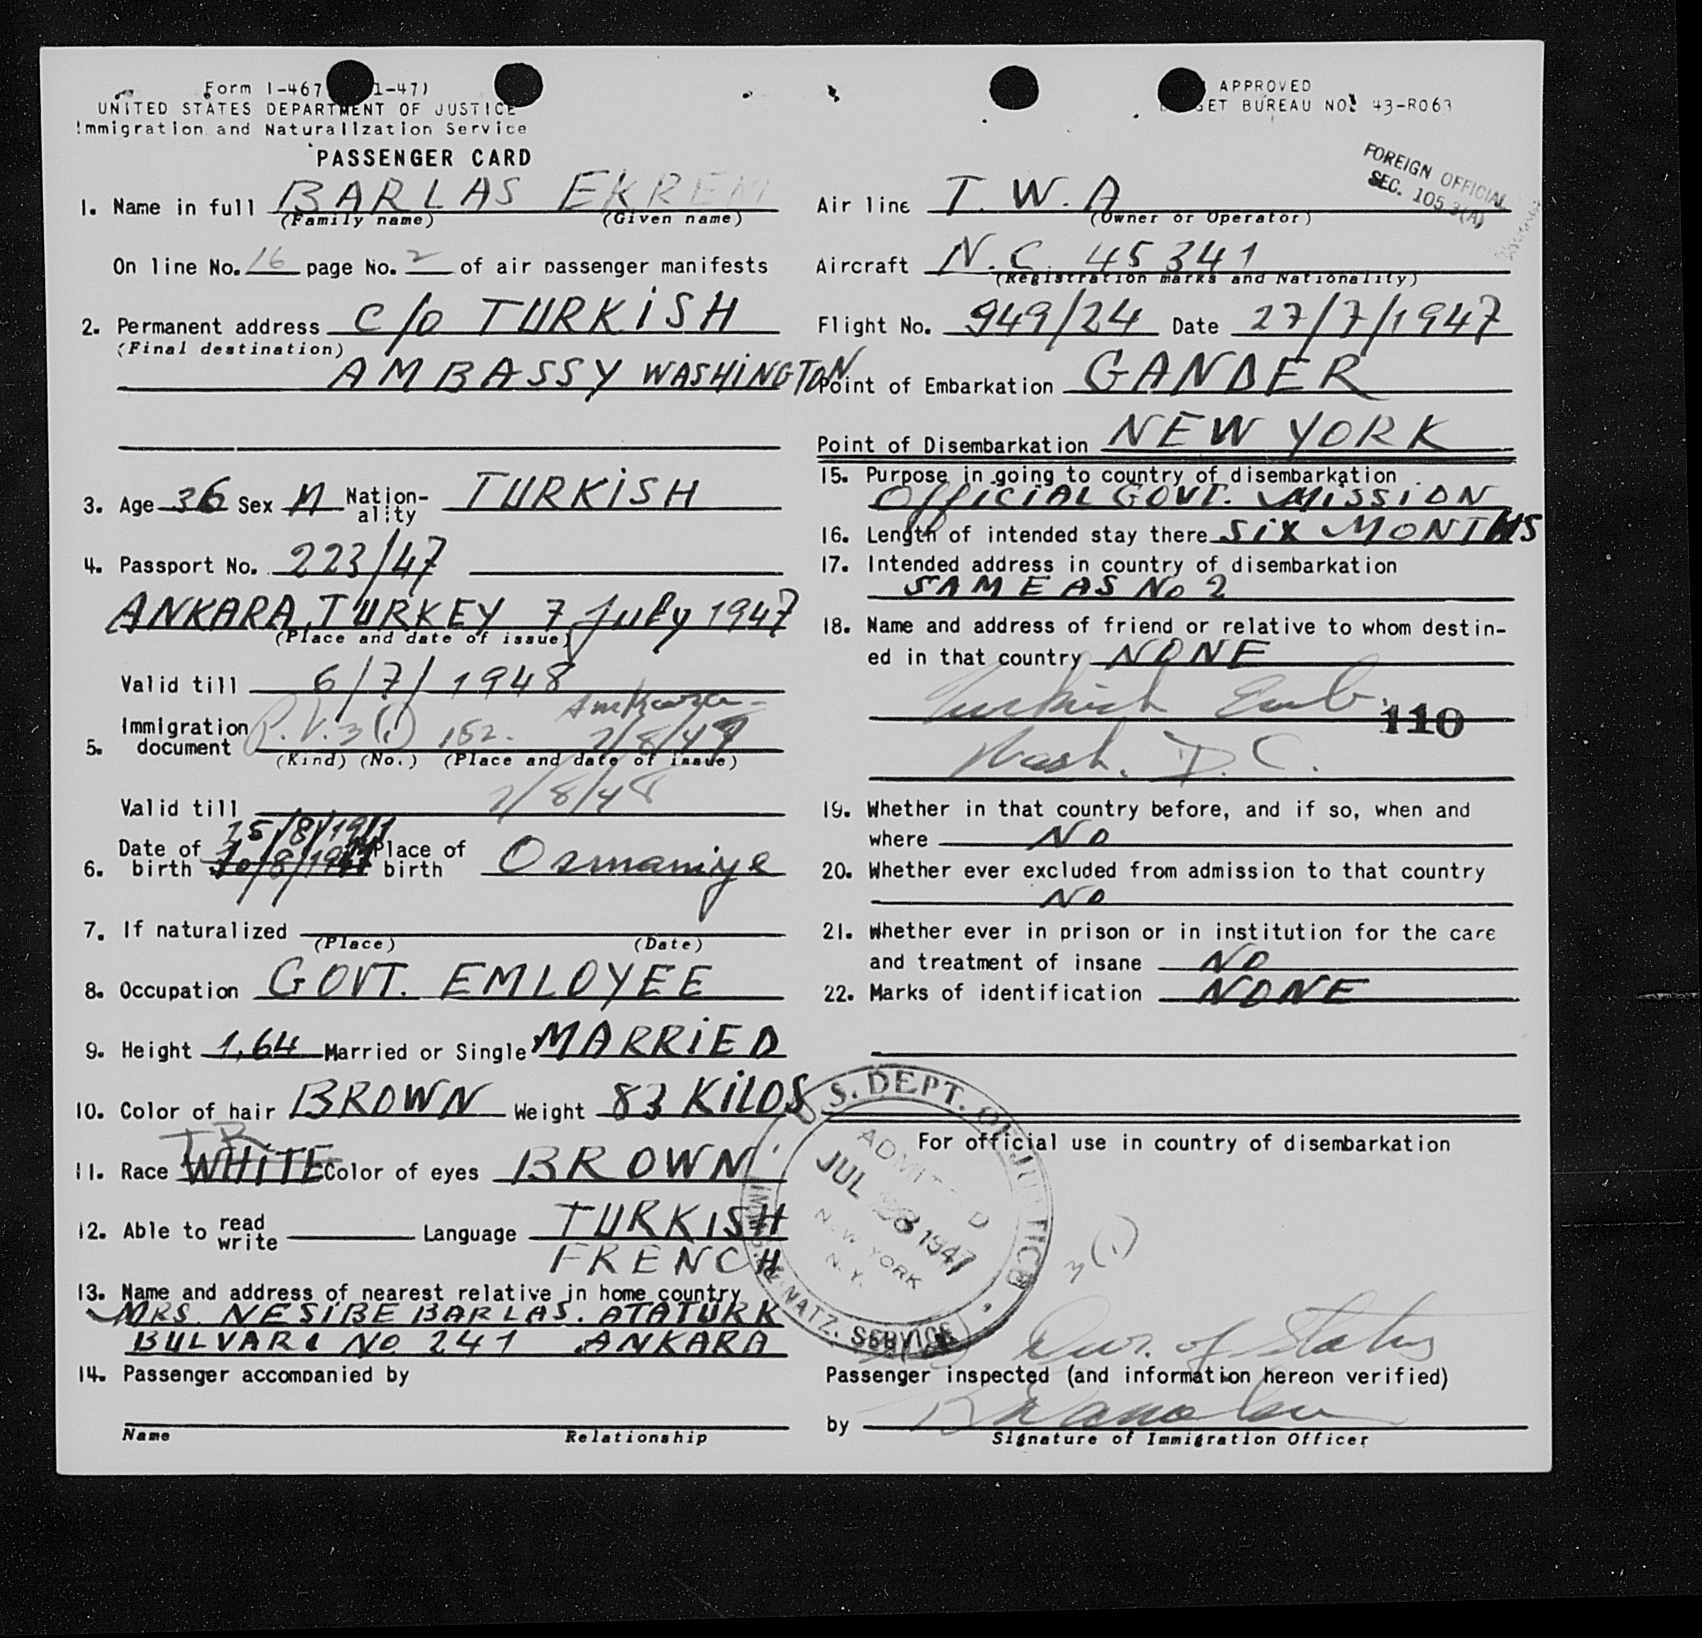 Form I-467 1-47)
UNITED STATES DEPARTMENT OF JUSTICE
Immigration and Naturalization Service
PASSENGER CARD
1. Name in full BARLAS EKREM
(Family name) (Given name)
On line No. 16 page No. 2 of air passenger manifests
2. Permanent address C/O TURKISH
(Final destination)
AMBASSY WASHINGTON
3. Age 36 Sex M Nation-ality TURKISH
4. Passport No. 223/47
ANKARA, TURKEY 7 July 1947
(Place and date of issue)
Valid till 6/7/1948
Ankara
5. Immigration document P.V.3(1) 152. 7/8/47
(Kind) (No.) (Place and date of issue)
Valid till 7/8/48
15/8/1911
6. Date of birth Place of birth Osmaniye
7. If naturalized
(Place) (Date)
8. Occupation GOVT. EMLOYEE
9. Height 1,64 Married or Single MARRIED
10. Color of hair BROWN Weight 83 KILOS
11. Race WHITE Color of eyes BROWN
12. Able to read write Language TURKISH
FRENCH
13. Name and address of nearest relative in home country
MRS. NESIBE BARLAS. ATATURK
BULVARI No 241 ANKARA
14. Passenger accompanied by
Name Relationship
APPROVED
BUREAU NO. 43-R063
FOREIGN OFFICIAL
SEC. 105.3(A)
Air line T.W.A
(Owner or Operator)
Aircraft N.C. 45341
(Registration marks and Nationality)
Flight No. 949/24 Date 27/7/1947
Point of Embarkation GANDER
Point of Disembarkation NEW YORK
15. Purpose in going to country of disembarkation
OFFICIAL GOVT. MISSION
16. Length of intended stay there SIX MONTHS
17. Intended address in country of disembarkation
SAME AS No 2
18. Name and address of friend or relative to whom destin-
ed in that country NONE
Turkish Emb.
110
Wash. D.C.
19. Whether in that country before, and if so, when and
where NO
20. Whether ever excluded from admission to that country
NO
21. Whether ever in prison or in institution for the care
and treatment of insane NO
22. Marks of identification NONE
For official use in country of disembarkation
U.S. DEPT. OF JUSTICE
ADMITTED
JUL 28 1947
NEW YORK
N.Y.
IMMIG. & NATZ. SERVICE
3(1)
Dur. of Status
Passenger inspected (and information hereon verified)
by
Signature of Immigration Officer